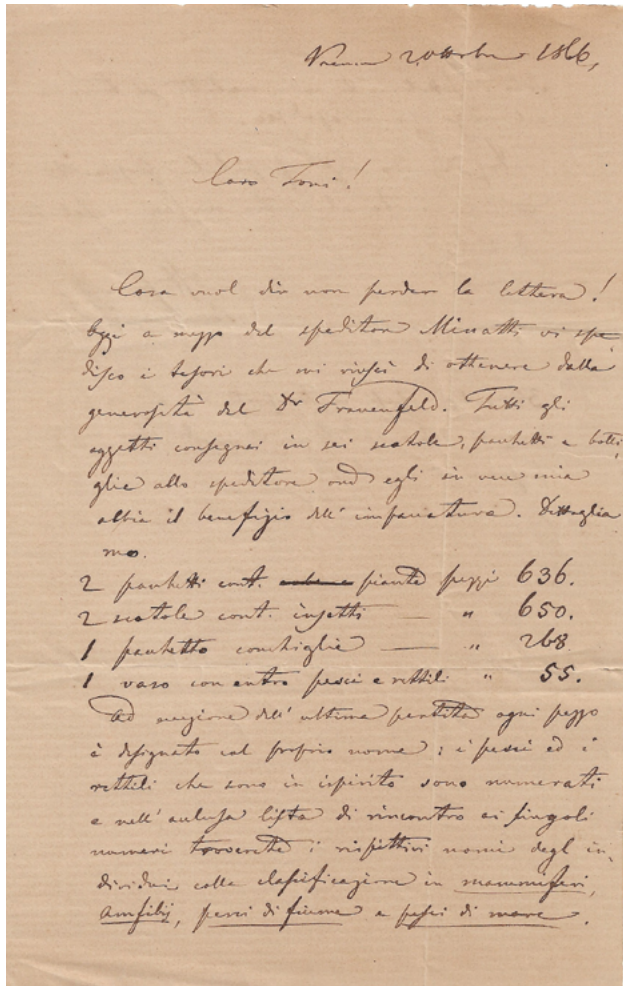 Vienna 2 ottobre 1866,
Caro Toni!
Cosa vuol dir non perder la lettera!
Oggi a mezzo del speditore Minatti vi spe
disco i tesori che mi riuscì di ottenere dalla
generosità del Dr Frauenfeld. Tutti gli
oggetti consegnai in sei scatole, pachetti e botti,
glie allo speditore ond egli in vece mia
abbia il benefizio dell' impaciatura. Dettaglia
mo.
2 pachetti cont. piante pezzi 636.
2 scatole cont. insetti — " 650.
1 pachetto conchiglie — " 268
1 vaso con entro pesci e rettili " 55.
Ad eccezione dell' ultima partita ogni pezzo
è designato col proprio nome; i pesci ed i
rettili che sono in ispirito sono numerati
e nell' aclusa lista di rincontro ai singoli
numeri troverete i rispettivi nomi degl in,
dividui colla classificazione in mammiferi,
Amfibij, pesci di fiume e pesci di mare.